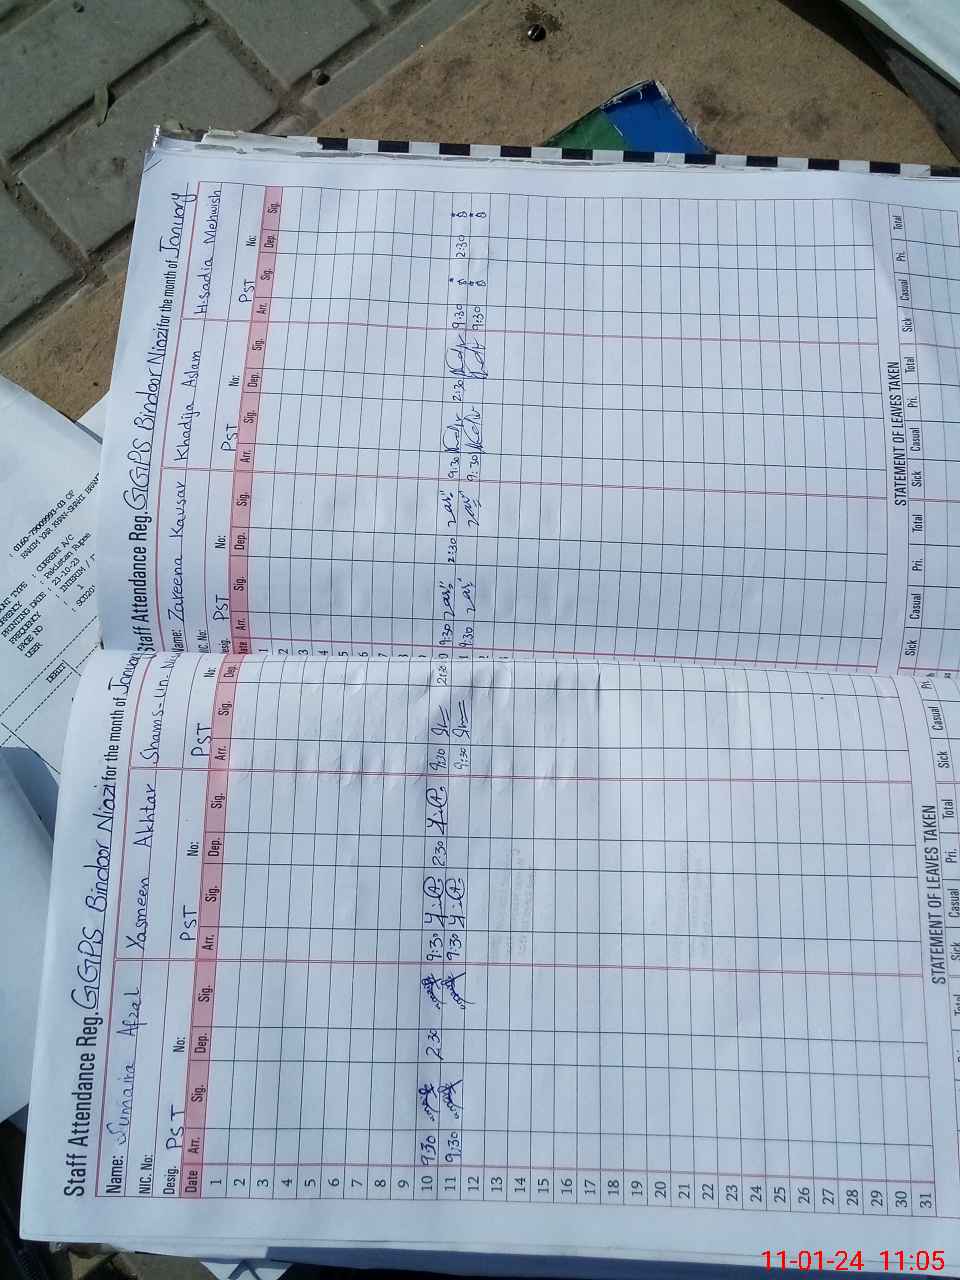 Staff Attendance Reg. GGPS Bindoor Niazi for the month of January
Name: Sumaira Afzal Yasmeen Akhtar Shams-Un-
NIC. No: No: No: No:
Desig. PST PST PST
Date Arr. Sig. Dep. Sig. Arr. Sig. Dep. Sig. Arr. Sig. Dep.
1
2
3
4
5
6
7
8
9
10 9:30 2:30 9:30 Y:A 2:30 Y:A 9:30 2:30
11 9:30 9:30 Y:A 9:30
12
13
14
15
16
17
18
19
20
21
22
23
24
25
26
27
28
29
30
31
STATEMENT OF LEAVES TAKEN
Sick Casual Pri. Total Sick Casual Pri.
Total
Staff Attendance Reg. GGPS Bindoor Niazi for the month of January
Name: Zareena Kausar Khadija Aslam H.sadia Mehwish
NIC. No: No: No: No:
esig. PST PST PST
Date Arr. Sig. Dep. Sig. Arr. Sig. Dep. Sig. Arr. Sig. Dep. Sig.
1
2
3
4
5
6
7
8
9
9:30 2:30 9:30 2:30 9:30 2:30
9:30 9:30 9:30
STATEMENT OF LEAVES TAKEN
Sick Casual Pri. Total Sick Casual Pri. Total Sick Casual Pri. Total
: 0160-79009993-03 OF
RAHIM YAR KHAN-SHAHI
: CURRENT A/C
: Pakistan Rupee
PRINTING DATE : 23-10-23
FREQUENCY : INTERIM /
PAGE NO : 1
USER
DEBIT
11-01-24 11:05